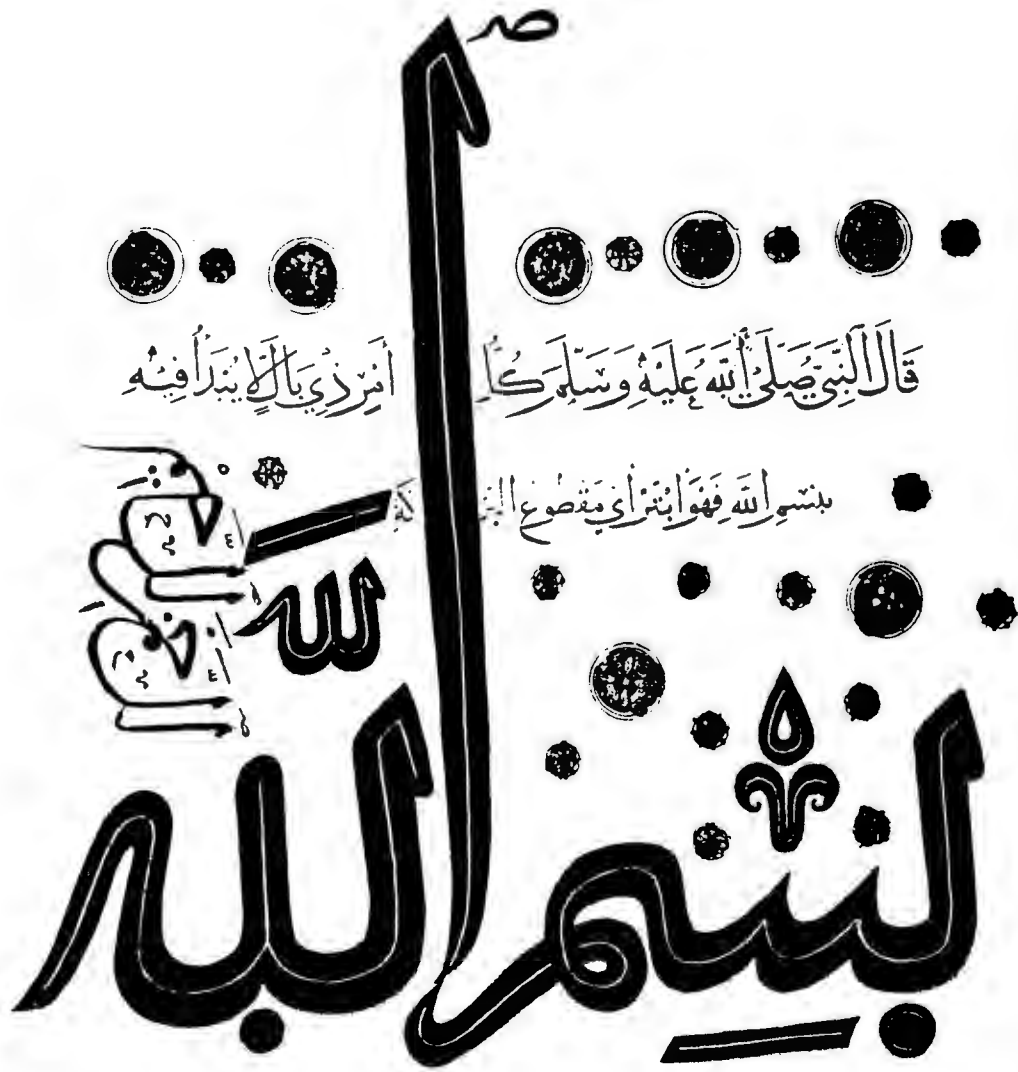 قَالَ ٱلنَّبِيُّ صَلَّى ٱللَّهُ عَلَيْهِ وَسَلَّمَ كُلُّ أَمْرٍ ذِي بَالٍ لَا يُبْدَأُ فِيهِ
بِسْمِ ٱللَّهِ فَهُوَ أَبْتَرُ أَيْ مَقْطُوعُ الْبَرَكَةِ
بِسْمِ اللَّه